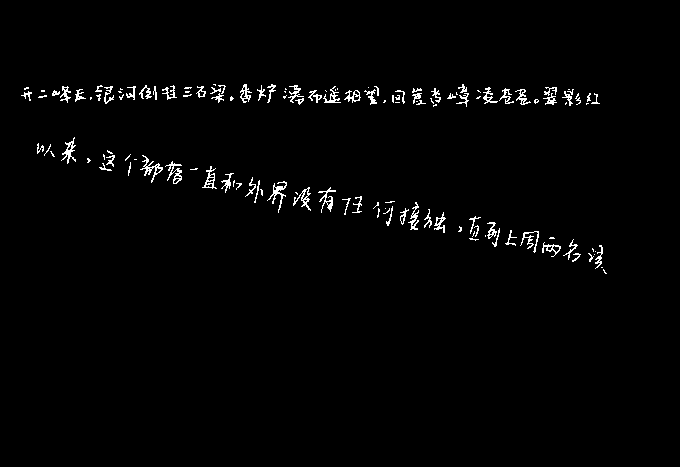 开二峰长,银河倒挂三石梁。香炉瀑布遥相望,回崖沓嶂凌苍苍。翠影红
以来,这个部落一直和外界没有任何接触,直到上周两名误